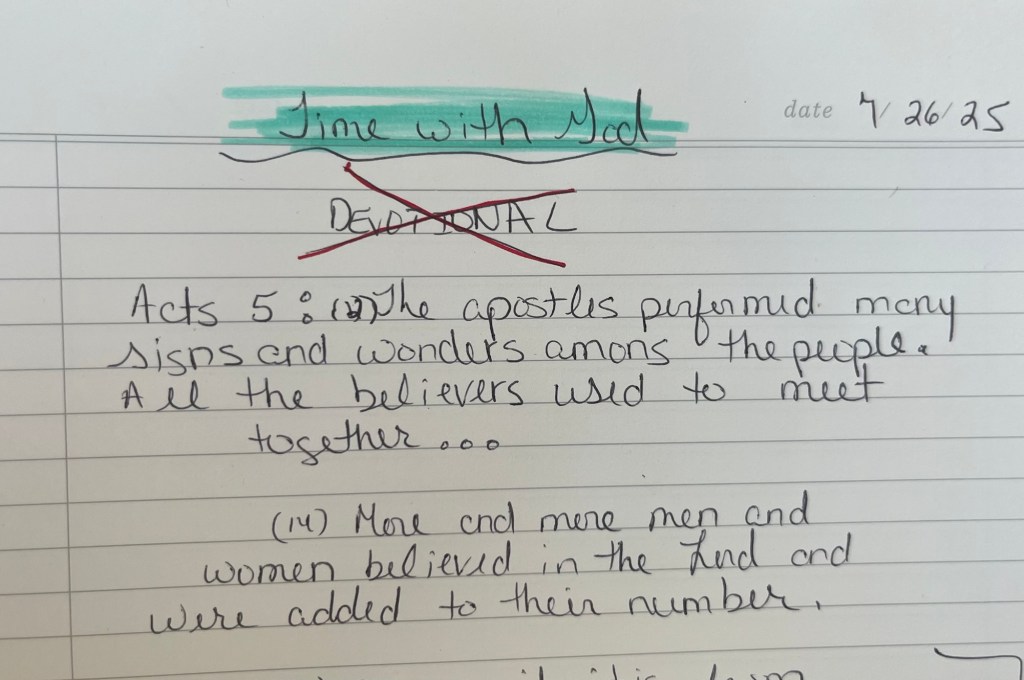 Time with God
date 7/26/25
DEVOTIONAL
Acts 5: (12) The apostles performed many
signs and wonders among the people.
All the believers used to meet
together...
(14) More and more men and
women believed in the Lord and
were added to their number.